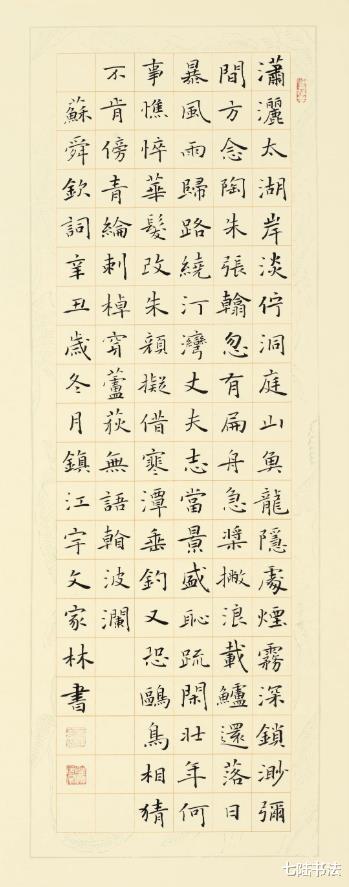 瀟灑太湖岸淡佇洞庭山魚龍隱處煙霧深鎖渺彌
間方念陶朱張翰忽有扁舟急槳撇浪載鱸還落日
暴風雨歸路繞汀灣丈夫志當景盛恥疏閑壯年何
事憔悴華髮改朱顏擬借寒潭垂釣又恐鷗鳥相猜
不肯傍青綸刺棹穿蘆荻無語看波瀾
蘇舜欽詞辛丑歲冬月鎮江宇文家林書
七陆书法